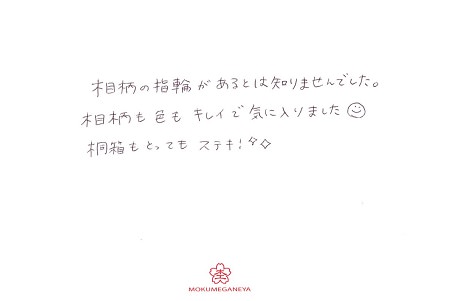 木目柄の指輪があるとは知りませんでした。
木目柄も色もキレイで気に入りました☺
桐箱もとってもステキ!✧✧
MOKUMEGANEYA